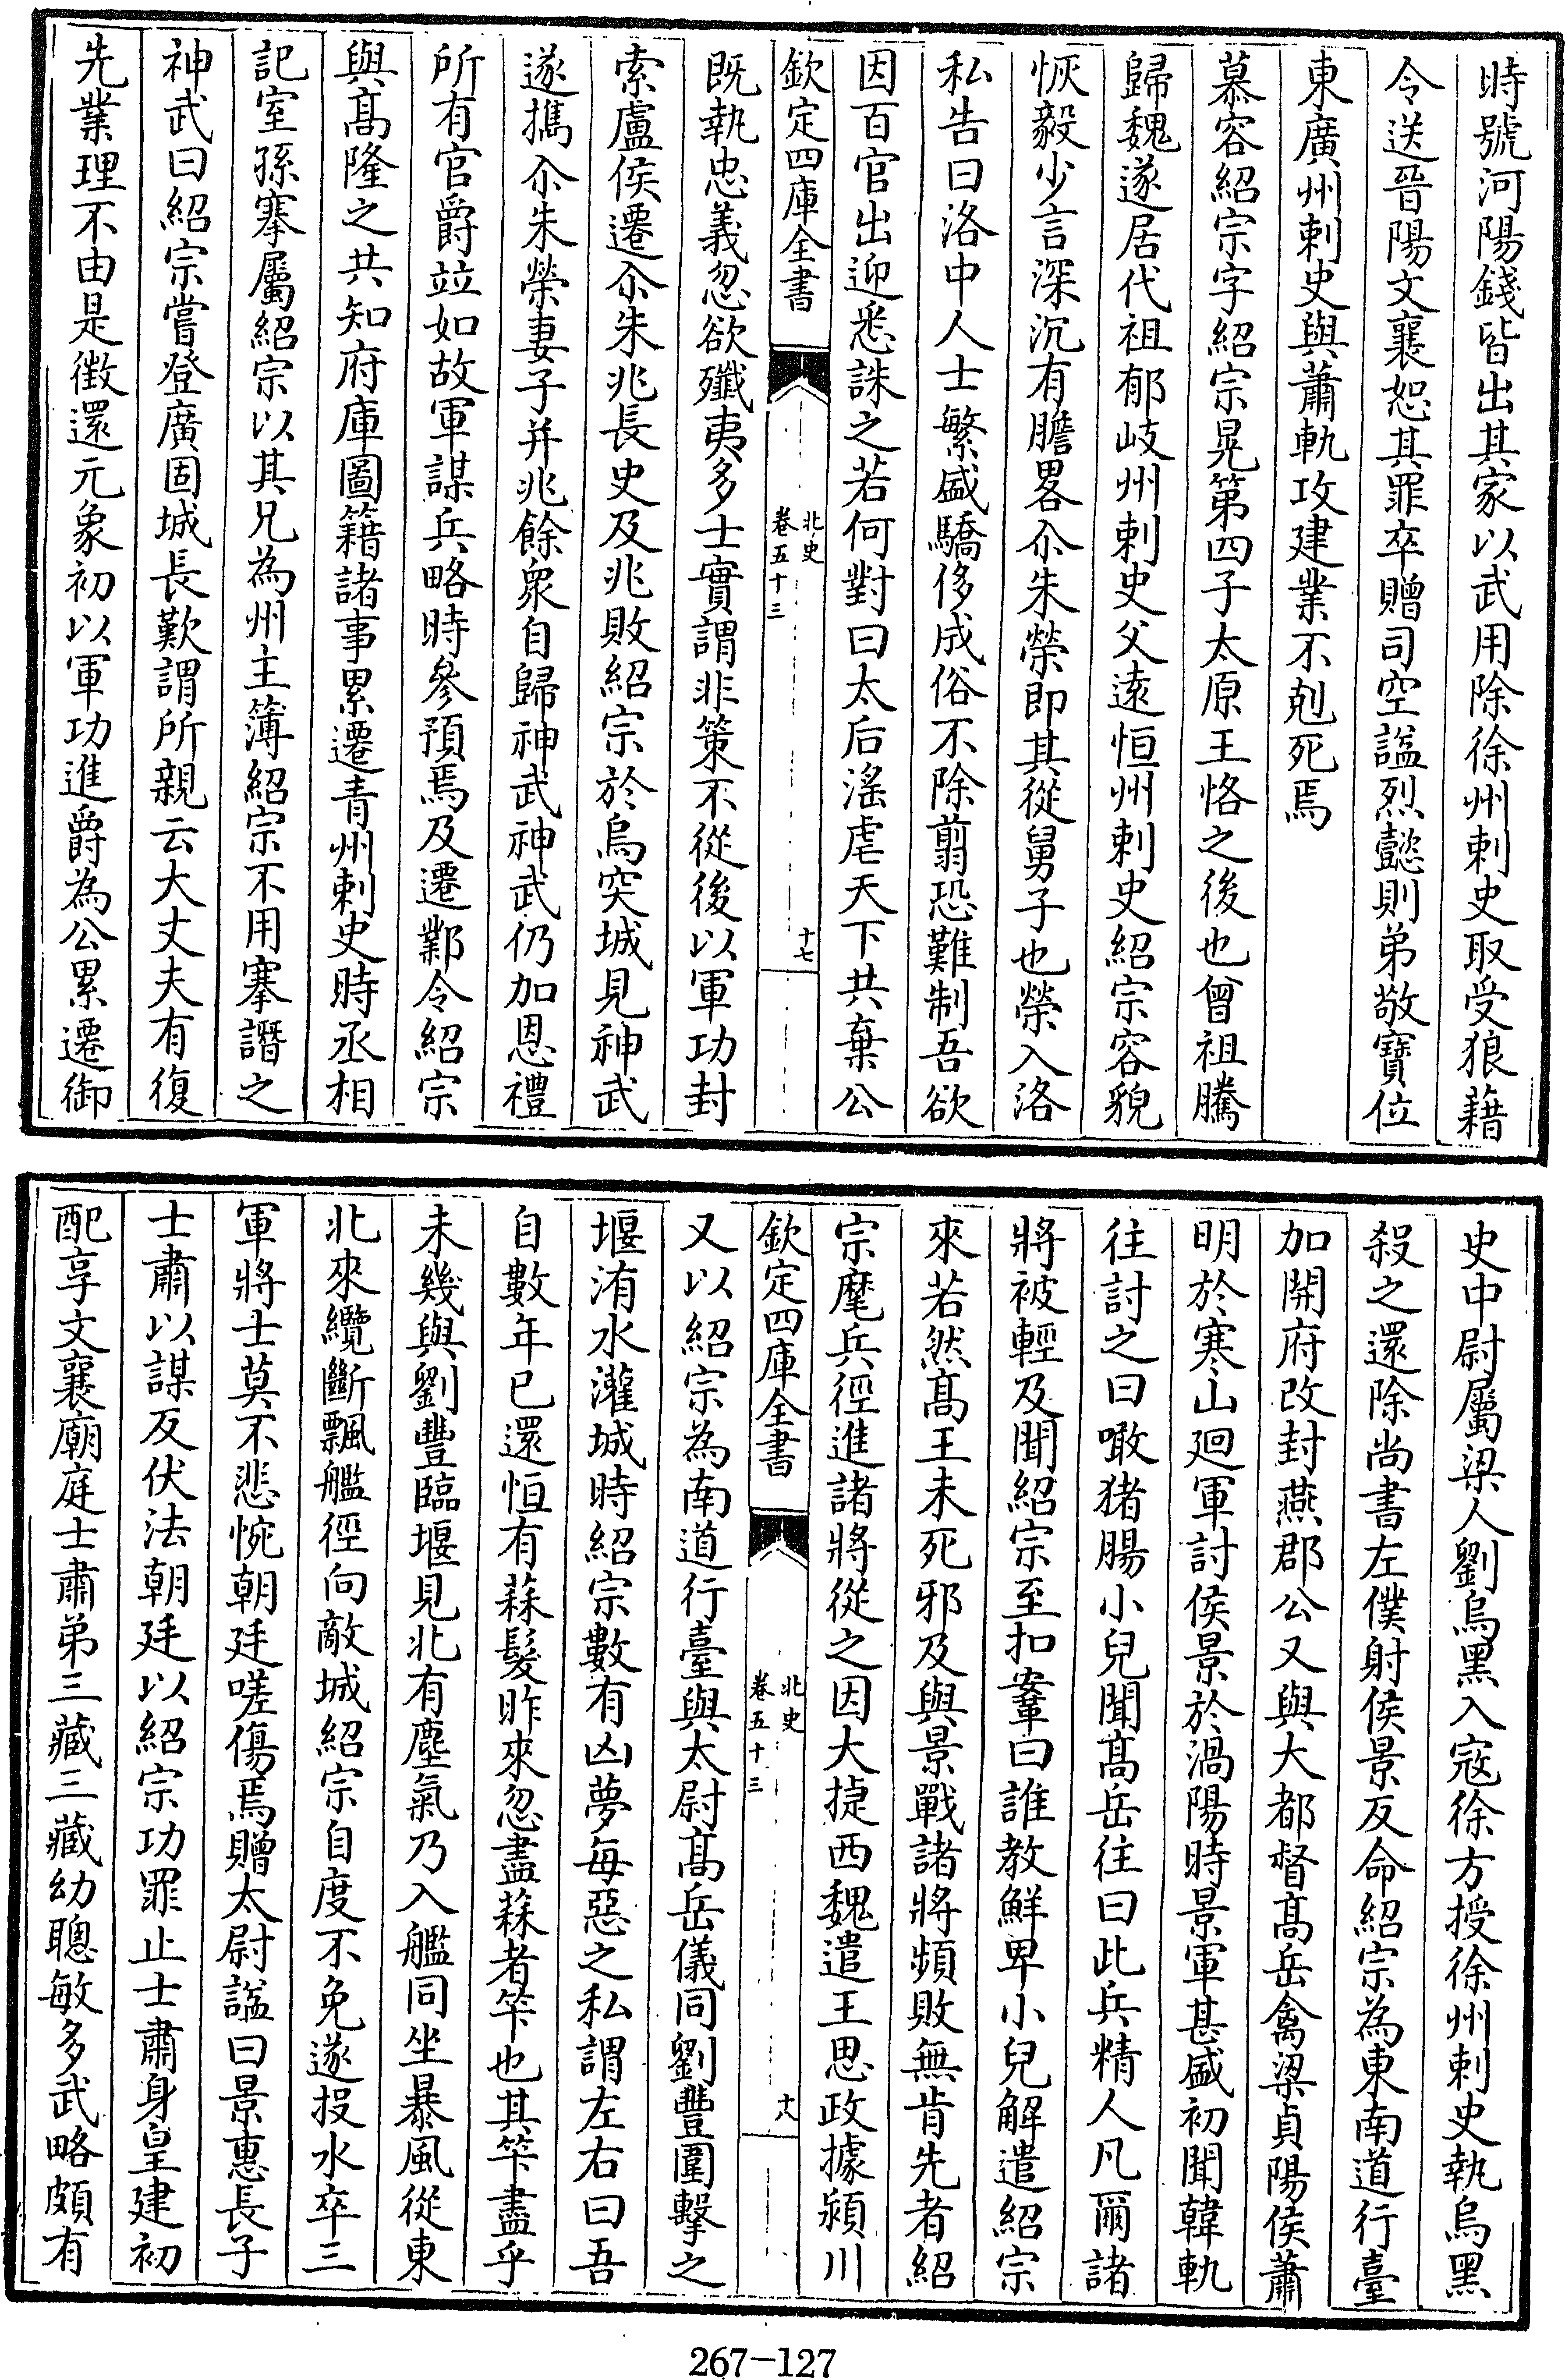 時號河陽錢皆出其家以武用除徐州刺史取受狼藉
令送晉陽文襄恕其罪卒贈司空諡烈懿則弟敬寶位
東廣州刺史與蕭軌攻建業不剋死焉
慕容紹宗字紹宗晃第四子太原王恪之後也曾祖騰
歸魏遂居代祖郁岐州刺史父遠恒州刺史紹宗容貌
恢毅少言深沉有膽畧尒朱榮即其從舅子也榮入洛
私告曰洛中人士繁盛驕侈成俗不除翦恐難制吾欲
因百官出迎悉誅之若何對曰太后滛虐天下共棄公
欽定四庫全書
北史
卷五十三
十七
既執忠義忽欲殲夷多士實謂非策不從後以軍功封
索盧侯遷尒朱兆長史及兆敗紹宗於烏突城見神武
遂攜尒朱榮妻子并兆餘衆自歸神武神武仍加恩禮
所有官爵竝如故軍謀兵略時參預焉及遷鄴令紹宗
與髙隆之共知府庫圖籍諸事累遷青州刺史時丞相
記室孫搴屬紹宗以其兄為州主簿紹宗不用搴譖之
神武曰紹宗嘗登廣固城長歎謂所親云大丈夫有復
先業理不由是徵還元象初以軍功進爵為公累遷御
史中尉屬梁人劉烏黑入寇徐方授徐州刺史執烏黑
殺之還除尚書左僕射侯景反命紹宗為東南道行臺
加開府改封燕郡公又與大都督髙岳禽梁貞陽侯蕭
明於寒山廻軍討侯景於渦陽時景軍甚盛初聞韓軌
往討之曰噉猪腸小兒聞髙岳往曰此兵精人凡爾諸
將被輕及聞紹宗至扣鞌曰誰教鮮卑小兒解遣紹宗
來若然髙王未死邪及與景戰諸將頻敗無肯先者紹
宗麾兵徑進諸將從之因大捷西魏遣王思政據潁川
欽定四庫全書
北史
卷五十三
十八
又以紹宗為南道行臺與太尉髙岳儀同劉豐圍擊之
堰洧水灌城時紹宗數有凶夢每惡之私謂左右曰吾
自數年已還恒有蒜髮昨來忽盡蒜者筭也其筭盡乎
未幾與劉豐臨堰見北有塵氣乃入艦同坐暴風從東
北來纜斷飄艦徑向敵城紹宗自度不免遂投水卒三
軍將士莫不悲惋朝廷嗟傷焉贈太尉諡曰景惠長子
士肅以謀反伏法朝廷以紹宗功罪止士肅身皇建初
配享文襄廟庭士肅弟三藏三藏幼聰敏多武略頗有
267-127